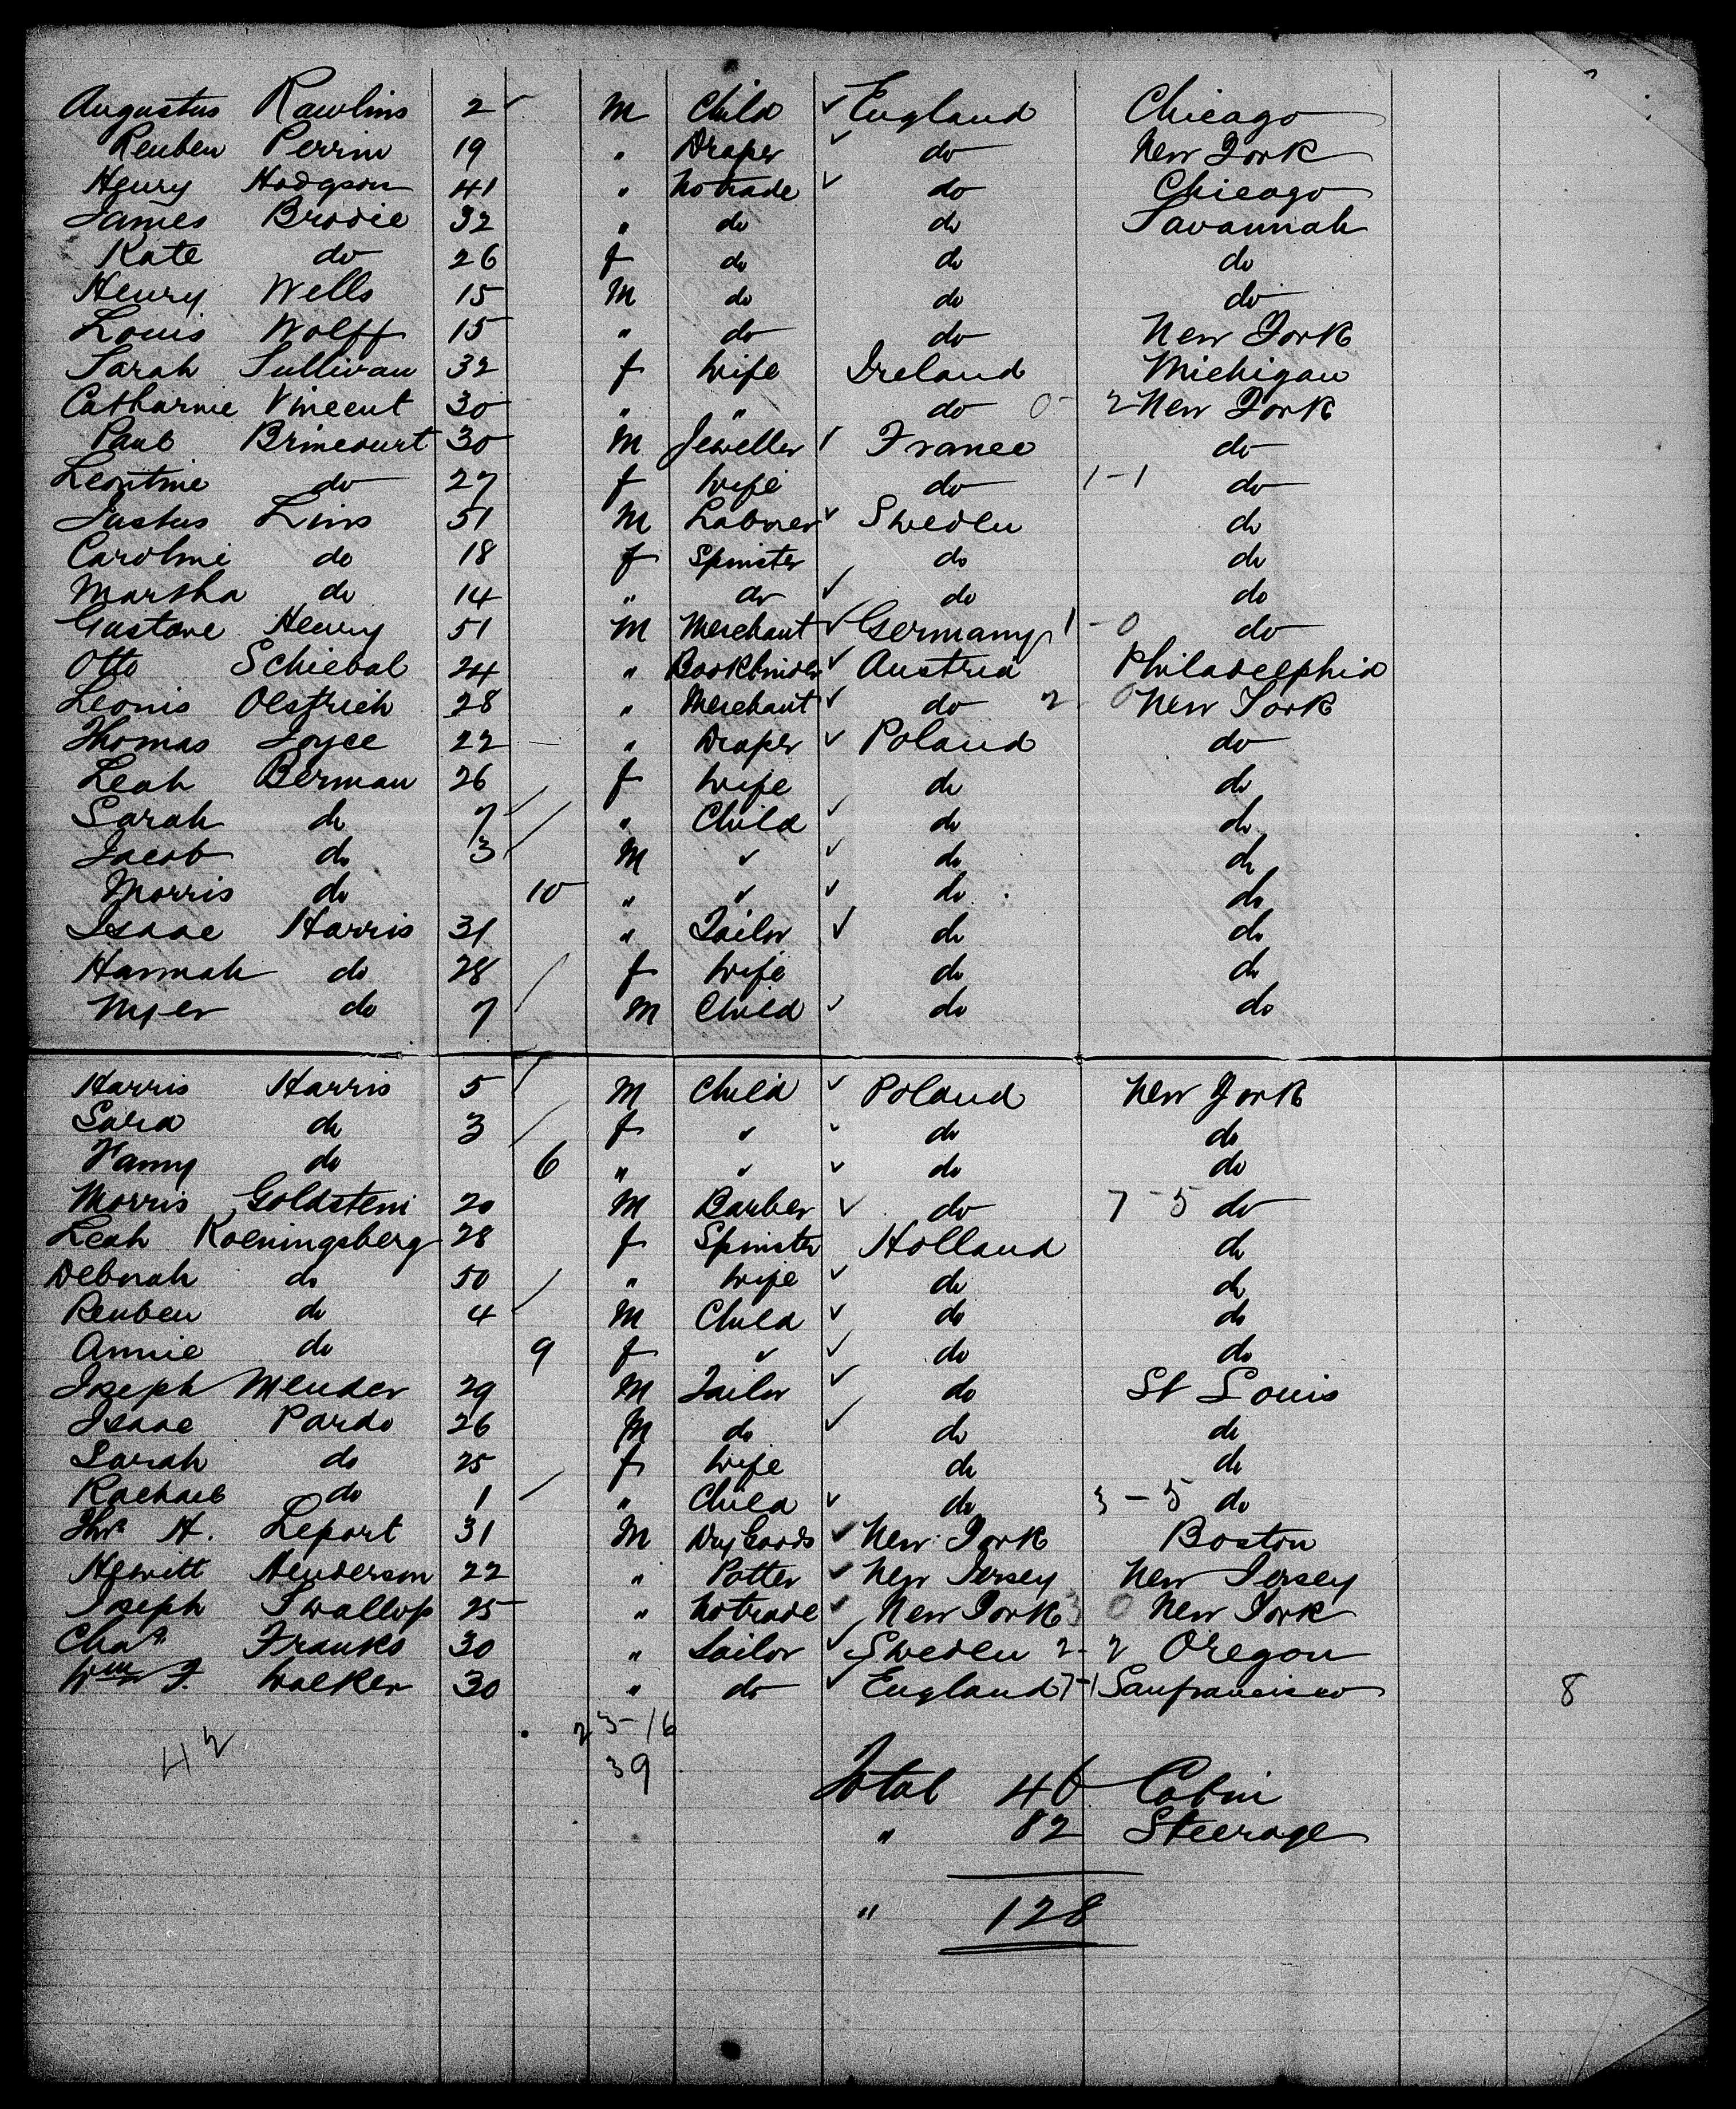 Augustus Rawlins 2 ✓ M Child ✓ England Chicago
Reuben Perrin 19 " Draper ✓ do New York
Henry Hodgson 41 " No trade ✓ do Chicago
James Brodie 32 " do do Savannah
Kate do 26 f do do do
Henry Wells 15 M do do do
Louis Wolff 15 " do do New York
Sarah Sullivan 32 f Wife Ireland Michigan
Catharine Vincent 30 " " do 0 - 2 New York
Paul Brincourt 30 M Jeweller France do
Leontine do 27 f Wife do 1-1 do
Justus Lins 51 M Laborer ✓ Sweden do
Caroline do 18 f Spinster do do
Martha do 14 " do ✓ do do
Gustave Henry 51 M Merchant ✓ Germany 1 - 0 do
Otto Schiebal 24 " Bookbinder ✓ Austria Philadelphia
Leonis Oestrich 28 " Merchant ✓ do 2 0 New York
Thomas Joyce 22 " Draper ✓ Poland do
Leah Berman 26 f Wife do do
Sarah do 7 " Child ✓ do do
Jacob do 3 M ✓ ✓ do do
Morris do 10 " ✓ ✓ do do
Isaac Harris 31 " Tailor ✓ do do
Hannah do 28 f Wife do do
Myer do 7 M Child ✓ do do
Harris Harris 5 M Child ✓ Poland New York
Sara do 3 f ✓ ✓ do do
Fanny do 6 " ✓ ✓ do do
Morris Goldstein 20 M Barber ✓ do 7-5 do
Leah Koeningsberg 28 f Spinster Holland do
Deborah do 50 " Wife ✓ do do
Reuben do 4 M Child ✓ do do
Annie do 9 f ✓ ✓ do do
Joseph Mender 29 M Tailor ✓ do St Louis
Isaac Pardo 26 M do ✓ do do
Sarah do 25 f Wife do do
Rachael do 1 " Child ✓ do 3-5 do
Thos H. Leport 31 M Dry Goods ✓ New York Boston
Hewitt Henderson 22 " Potter ✓ New Jersey New Jersey
Joseph Swallop 25 " No trade ✓ New York 3 0 New York
Chas Franks 30 " Sailor ✓ Sweden 2-2 Oregon
Wm J. Walker 30 " do ✓ England 7-1 Sanfrancisco 8
23-16
42 39
Total 46 Cabin
" 82 Steerage
" 128